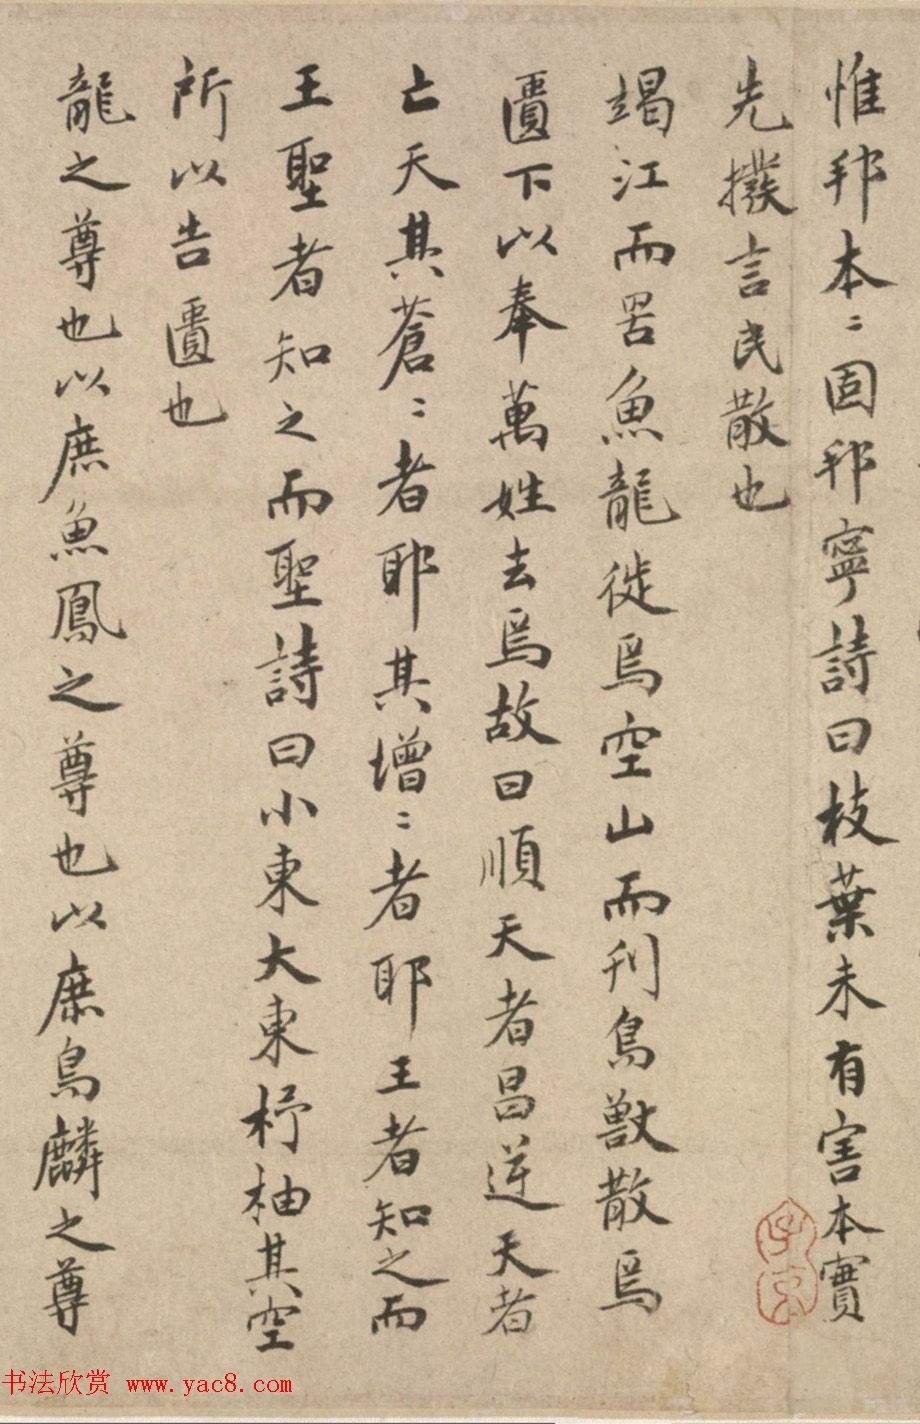 惟邦本〻固邦寧詩曰枝葉未有害本實
先撥言民散也
竭江而罟魚龍徙焉空山而刋鳥獸散焉
匱下以奉萬姓去焉故曰順天者昌逆天者
亡天其蒼〻者耶其增〻者耶王者知之而
王聖者知之而聖詩曰小東大東杼柚其空
所以告匱也
龍之尊也以庶魚鳳之尊也以庶鳥麟之尊
子京
书法欣赏 www.yac8.com